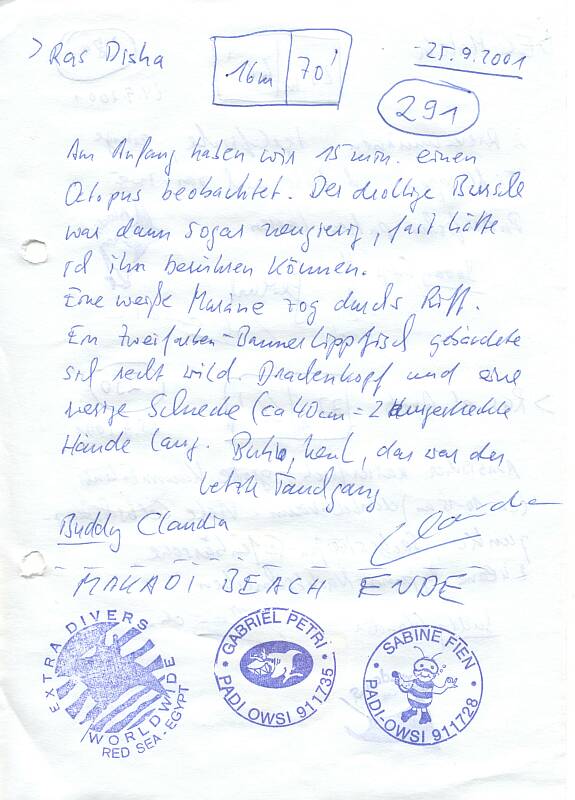 > Ras Disha
16m 70'
25.9.2001
291
Am Anfang haben wir 15 min. einen
Octopus beobachtet. Der drollige Bursche
war dann sogar neugierig, fast hätte
ich ihn berühren können.
Eine weiße Muräne zog durchs Riff.
Ein Zweifarben-Bannerlippfisch gebärdete
sich recht wild. Drachenkopf und eine
riesige Schnecke (ca 40cm = 2 ausgestreckte
Hände lang. Buhu, heul, das war der
letzte Tauchgang
Buddy Claudia
Claudia
MAKADI BEACH ENDE
EXTRA DIVERS
WORLDWIDE
RED SEA - EGYPT
GABRIËL PETRI
PADI OWSI 911735
SABINE FIEN
PADI-OWSI 911728